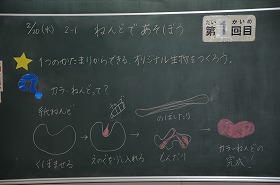 2/10(水) 2-1 ねんどであそぼう
だい かいめ
第1回目
1つのかたまりからできる、オリジナル生物をつくろう。
カラーねんどって?
紙ねんど
のばしたり
くぼませる
えのぐをいれる
しんだり
カラーねんどの
完成!